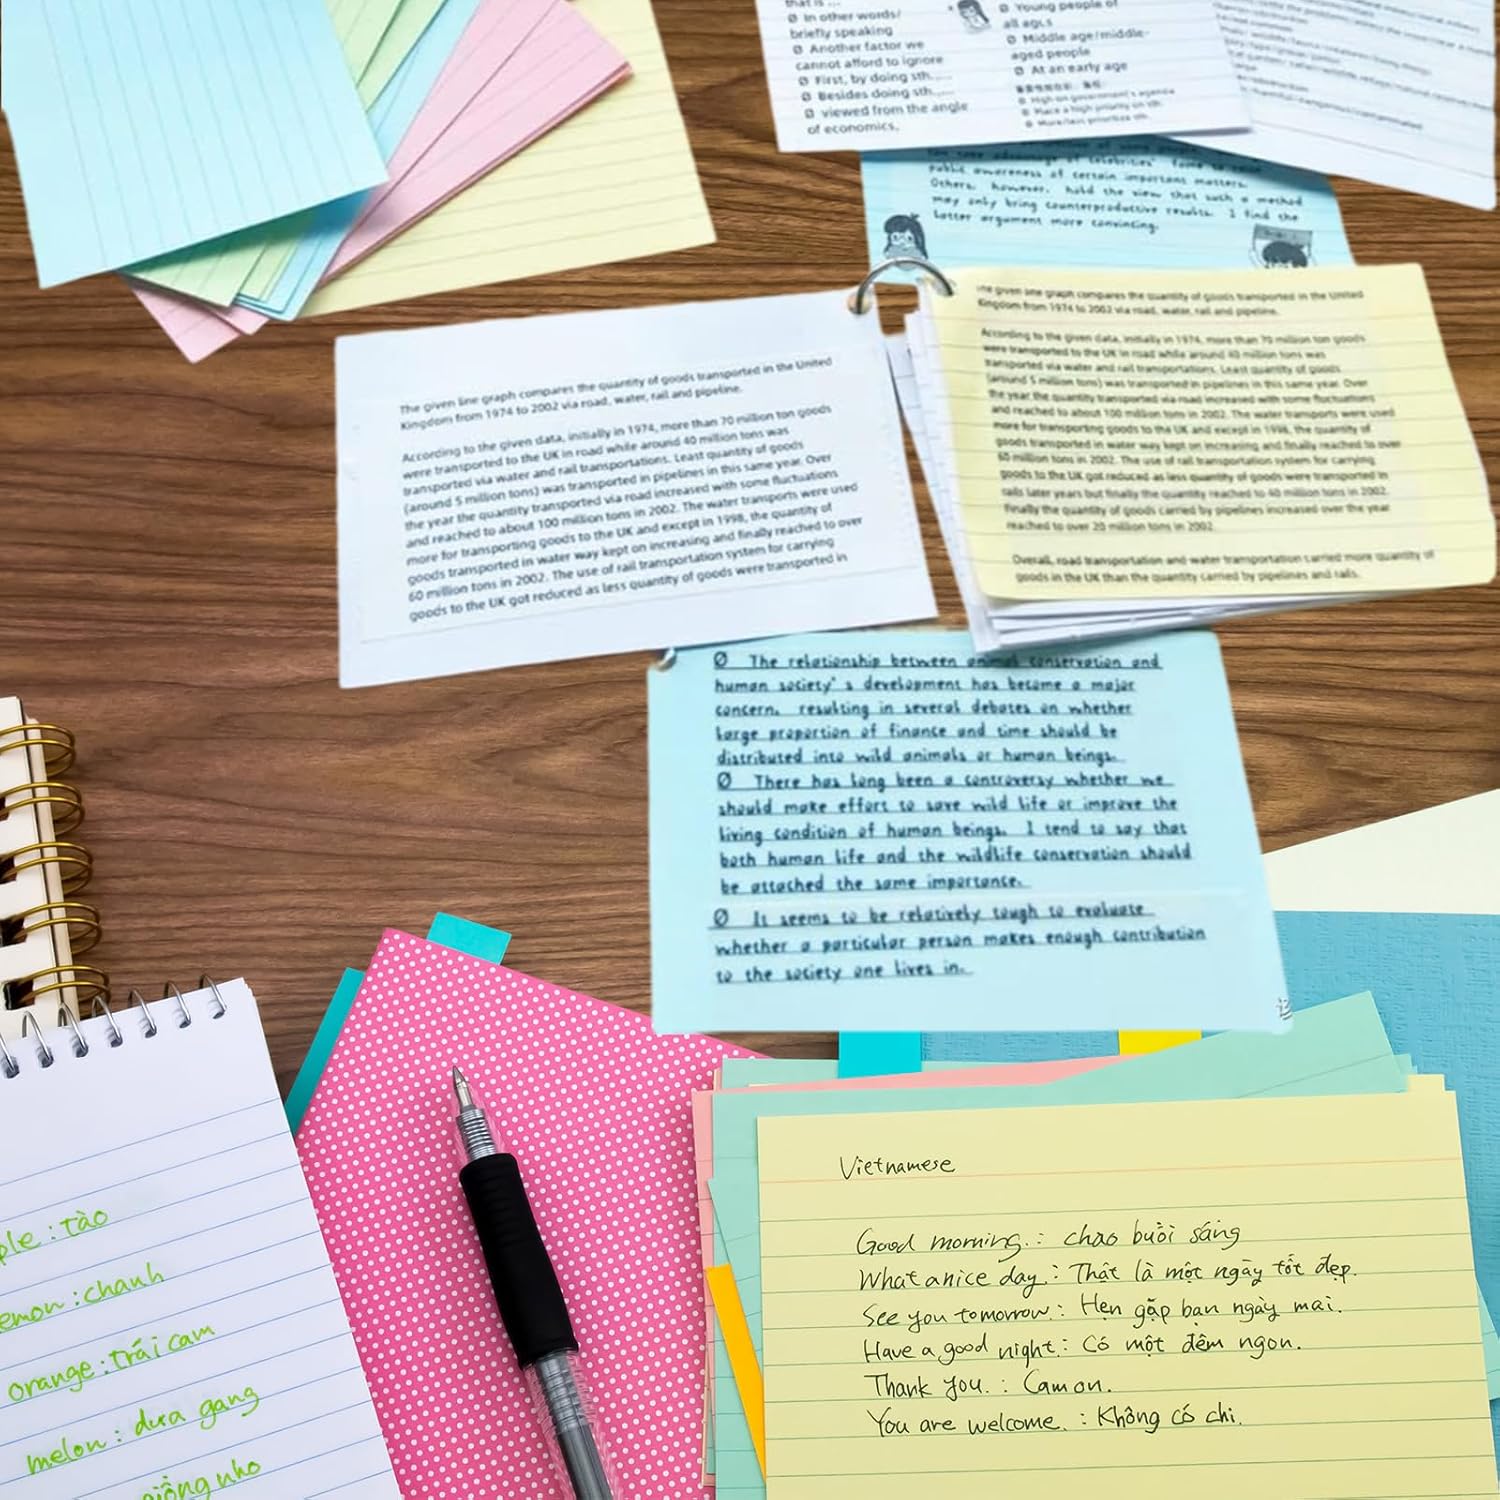 that is ...
Ø In other words/
briefly speaking
Ø Another factor we
cannot afford to ignore
Ø First, by doing sth.....
Ø Besides doing sth.....
Ø viewed from the angle
of economics,
Ø Young people of
all ages
Ø Middle age/middle-
aged people
Ø At an early age
Ø High on government's agenda
Ø Place a high priority on sth.
Ø More/less prioritize sth.
public awareness of certain important matters.
Others, however, hold the view that such a method
may only bring counterproductive results. I find the
latter argument more convincing.
The given line graph compares the quantity of goods transported in the United
Kingdom from 1974 to 2002 via road, water, rail and pipeline.
According to the given data, initially in 1974, more than 70 million ton goods
were transported to the UK in road while around 40 million tons was
transported via water and rail transportations. Least quantity of goods
(around 5 million tons) was transported in pipelines in this same year. Over
the year the quantity transported via road increased with some fluctuations
and reached to about 100 million tons in 2002. The water transports were used
more for transporting goods to the UK and except in 1998, the quantity of
goods transported in water way kept on increasing and finally reached to over
60 million tons in 2002. The use of rail transportation system for carrying
goods to the UK got reduced as less quantity of goods were transported in
the given line graph compares the quantity of goods transported in the United
Kingdom from 1974 to 2002 via road, water, rail and pipeline.
According to the given data, initially in 1974, more than 70 million ton goods
were transported to the UK in road while around 40 million tons was
transported via water and rail transportations. Least quantity of goods
(around 5 million tons) was transported in pipelines in this same year. Over
the year the quantity transported via road increased with some fluctuations
and reached to about 100 million tons in 2002. The water transports were used
more for transporting goods to the UK and except in 1998, the quantity of
goods transported in water way kept on increasing and finally reached to over
60 million tons in 2002. The use of rail transportation system for carrying
goods to the UK got reduced as less quantity of goods were transported in
rails later years but finally the quantity reached to 40 million tons in 2002.
Finally the quantity of goods carried by pipelines increased over the year
reached to over 20 million tons in 2002.
Overall, road transportation and water transportation carried more quantity of
goods in the UK than the quantity carried by pipelines and rails.
Ø The relationship between animal conservation and
human society's development has become a major
concern, resulting in several debates on whether
large proportion of finance and time should be
distributed into wild animals or human beings.
Ø There has long been a controversy whether we
should make effort to save wild life or improve the
living condition of human beings. I tend to say that
both human life and the wildlife conservation should
be attached the same importance.
Ø It seems to be relatively tough to evaluate
whether a particular person makes enough contribution
to the society one lives in.
ple : tào
emon : chanh
orange : trái cam
melon : dưa gang
giồng nho
Vietnamese
Good morning. : chao buổi sáng
What a nice day. : Thật là một ngày tốt đẹp.
See you tomorrow : Hẹn gặp bạn ngày mai.
Have a good night. : Có một đêm ngon.
Thank you. : Cam on.
You are welcome. : Không có chi.